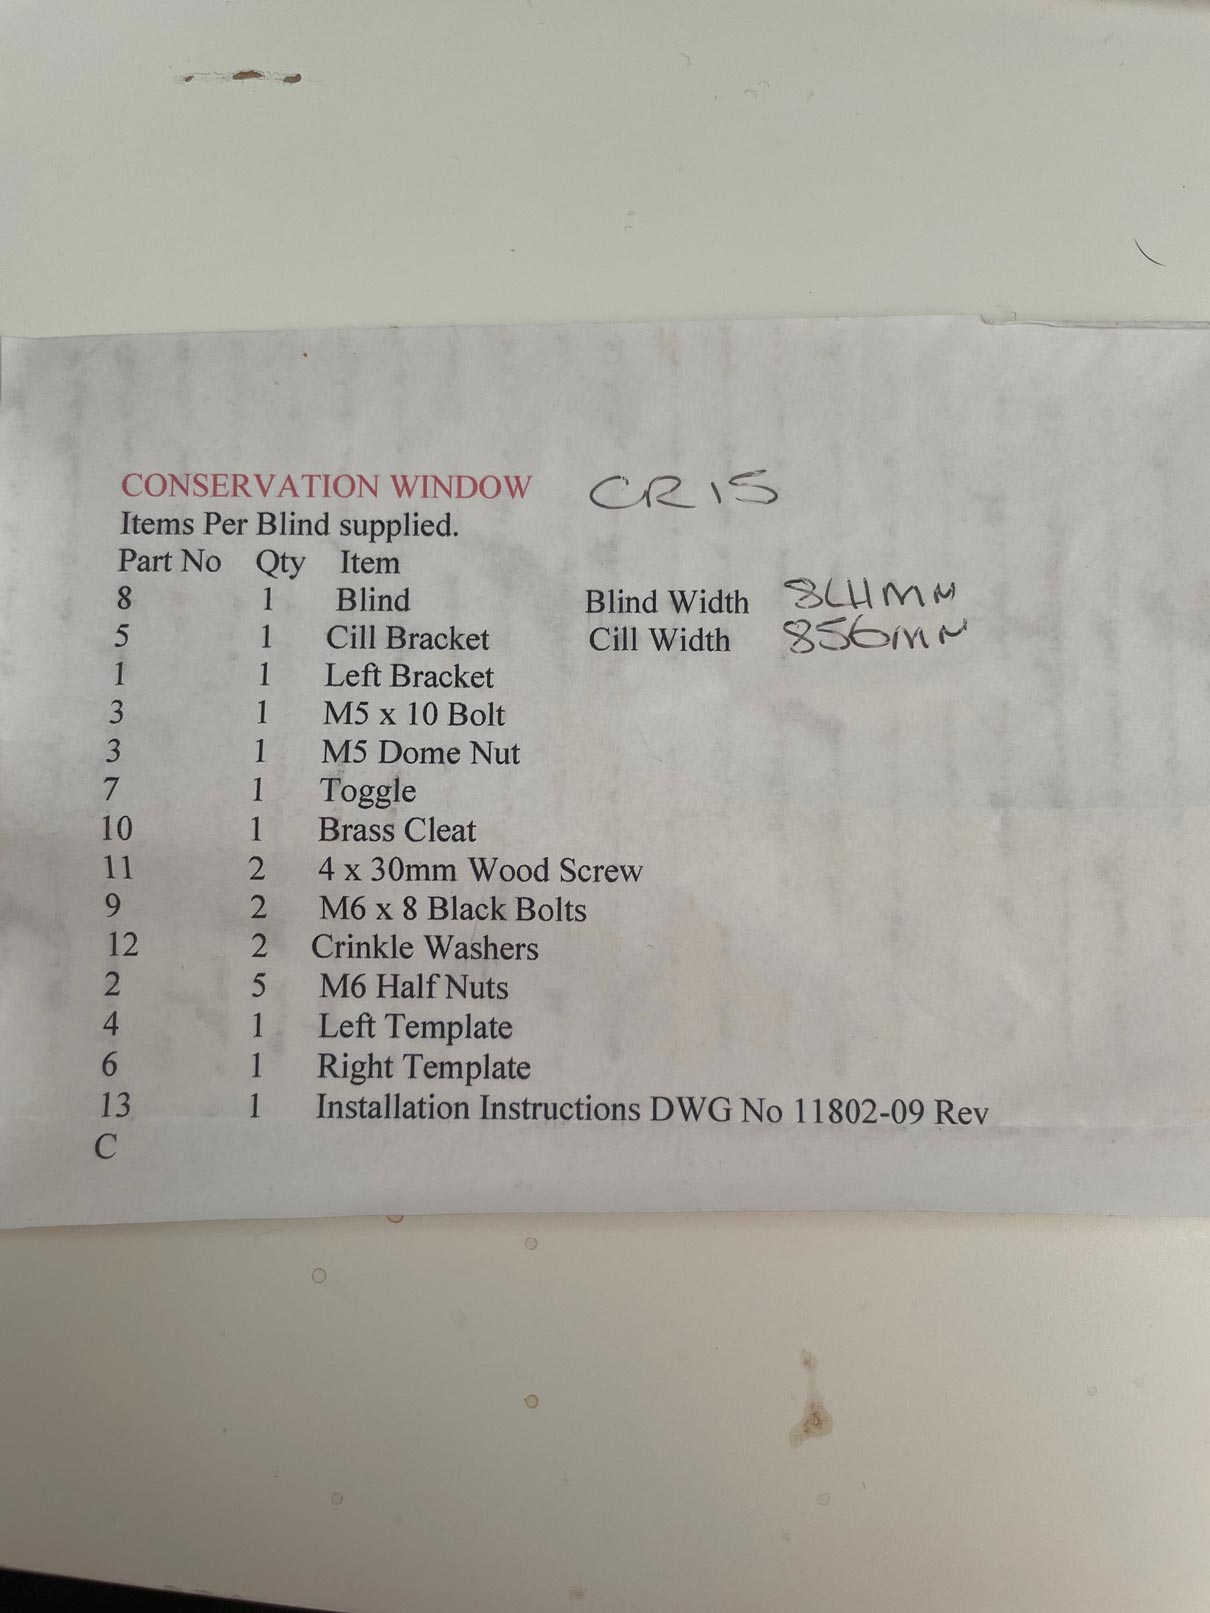 CONSERVATION WINDOW CR15
Items Per Blind supplied.
Part No Qty Item
8 1 Blind Blind Width 841MM
5 1 Cill Bracket Cill Width 856MM
1 1 Left Bracket
3 1 M5 x 10 Bolt
3 1 M5 Dome Nut
7 1 Toggle
10 1 Brass Cleat
11 2 4 x 30mm Wood Screw
9 2 M6 x 8 Black Bolts
12 2 Crinkle Washers
2 5 M6 Half Nuts
4 1 Left Template
6 1 Right Template
13 1 Installation Instructions DWG No 11802-09 Rev
C